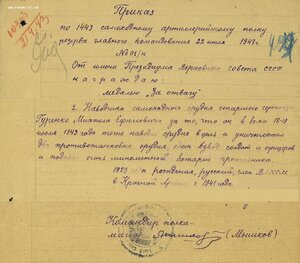 Приказ
по 1443 самоходному артиллерийскому полку
резерва главного командования 22 июля 1943 г.
№ 01/н
От имени Президиума Верховного совета СССР
награждаю:
медалью "За отвагу"
2. Наводчика самоходного орудия старшего
Гуренко Михаила Ефимовича за то, что он в боях 18-19
июля 1943 года точно наводил орудие в цель и уничтожил
два противотанковых орудия, один взвод солдат и офицеров
и подавил огонь минометной батареи противника.
1923 года рождения, русский, член ВЛКСМ,
в Красной Армии с 1941 года.
Командир полка
майор (Мошков)